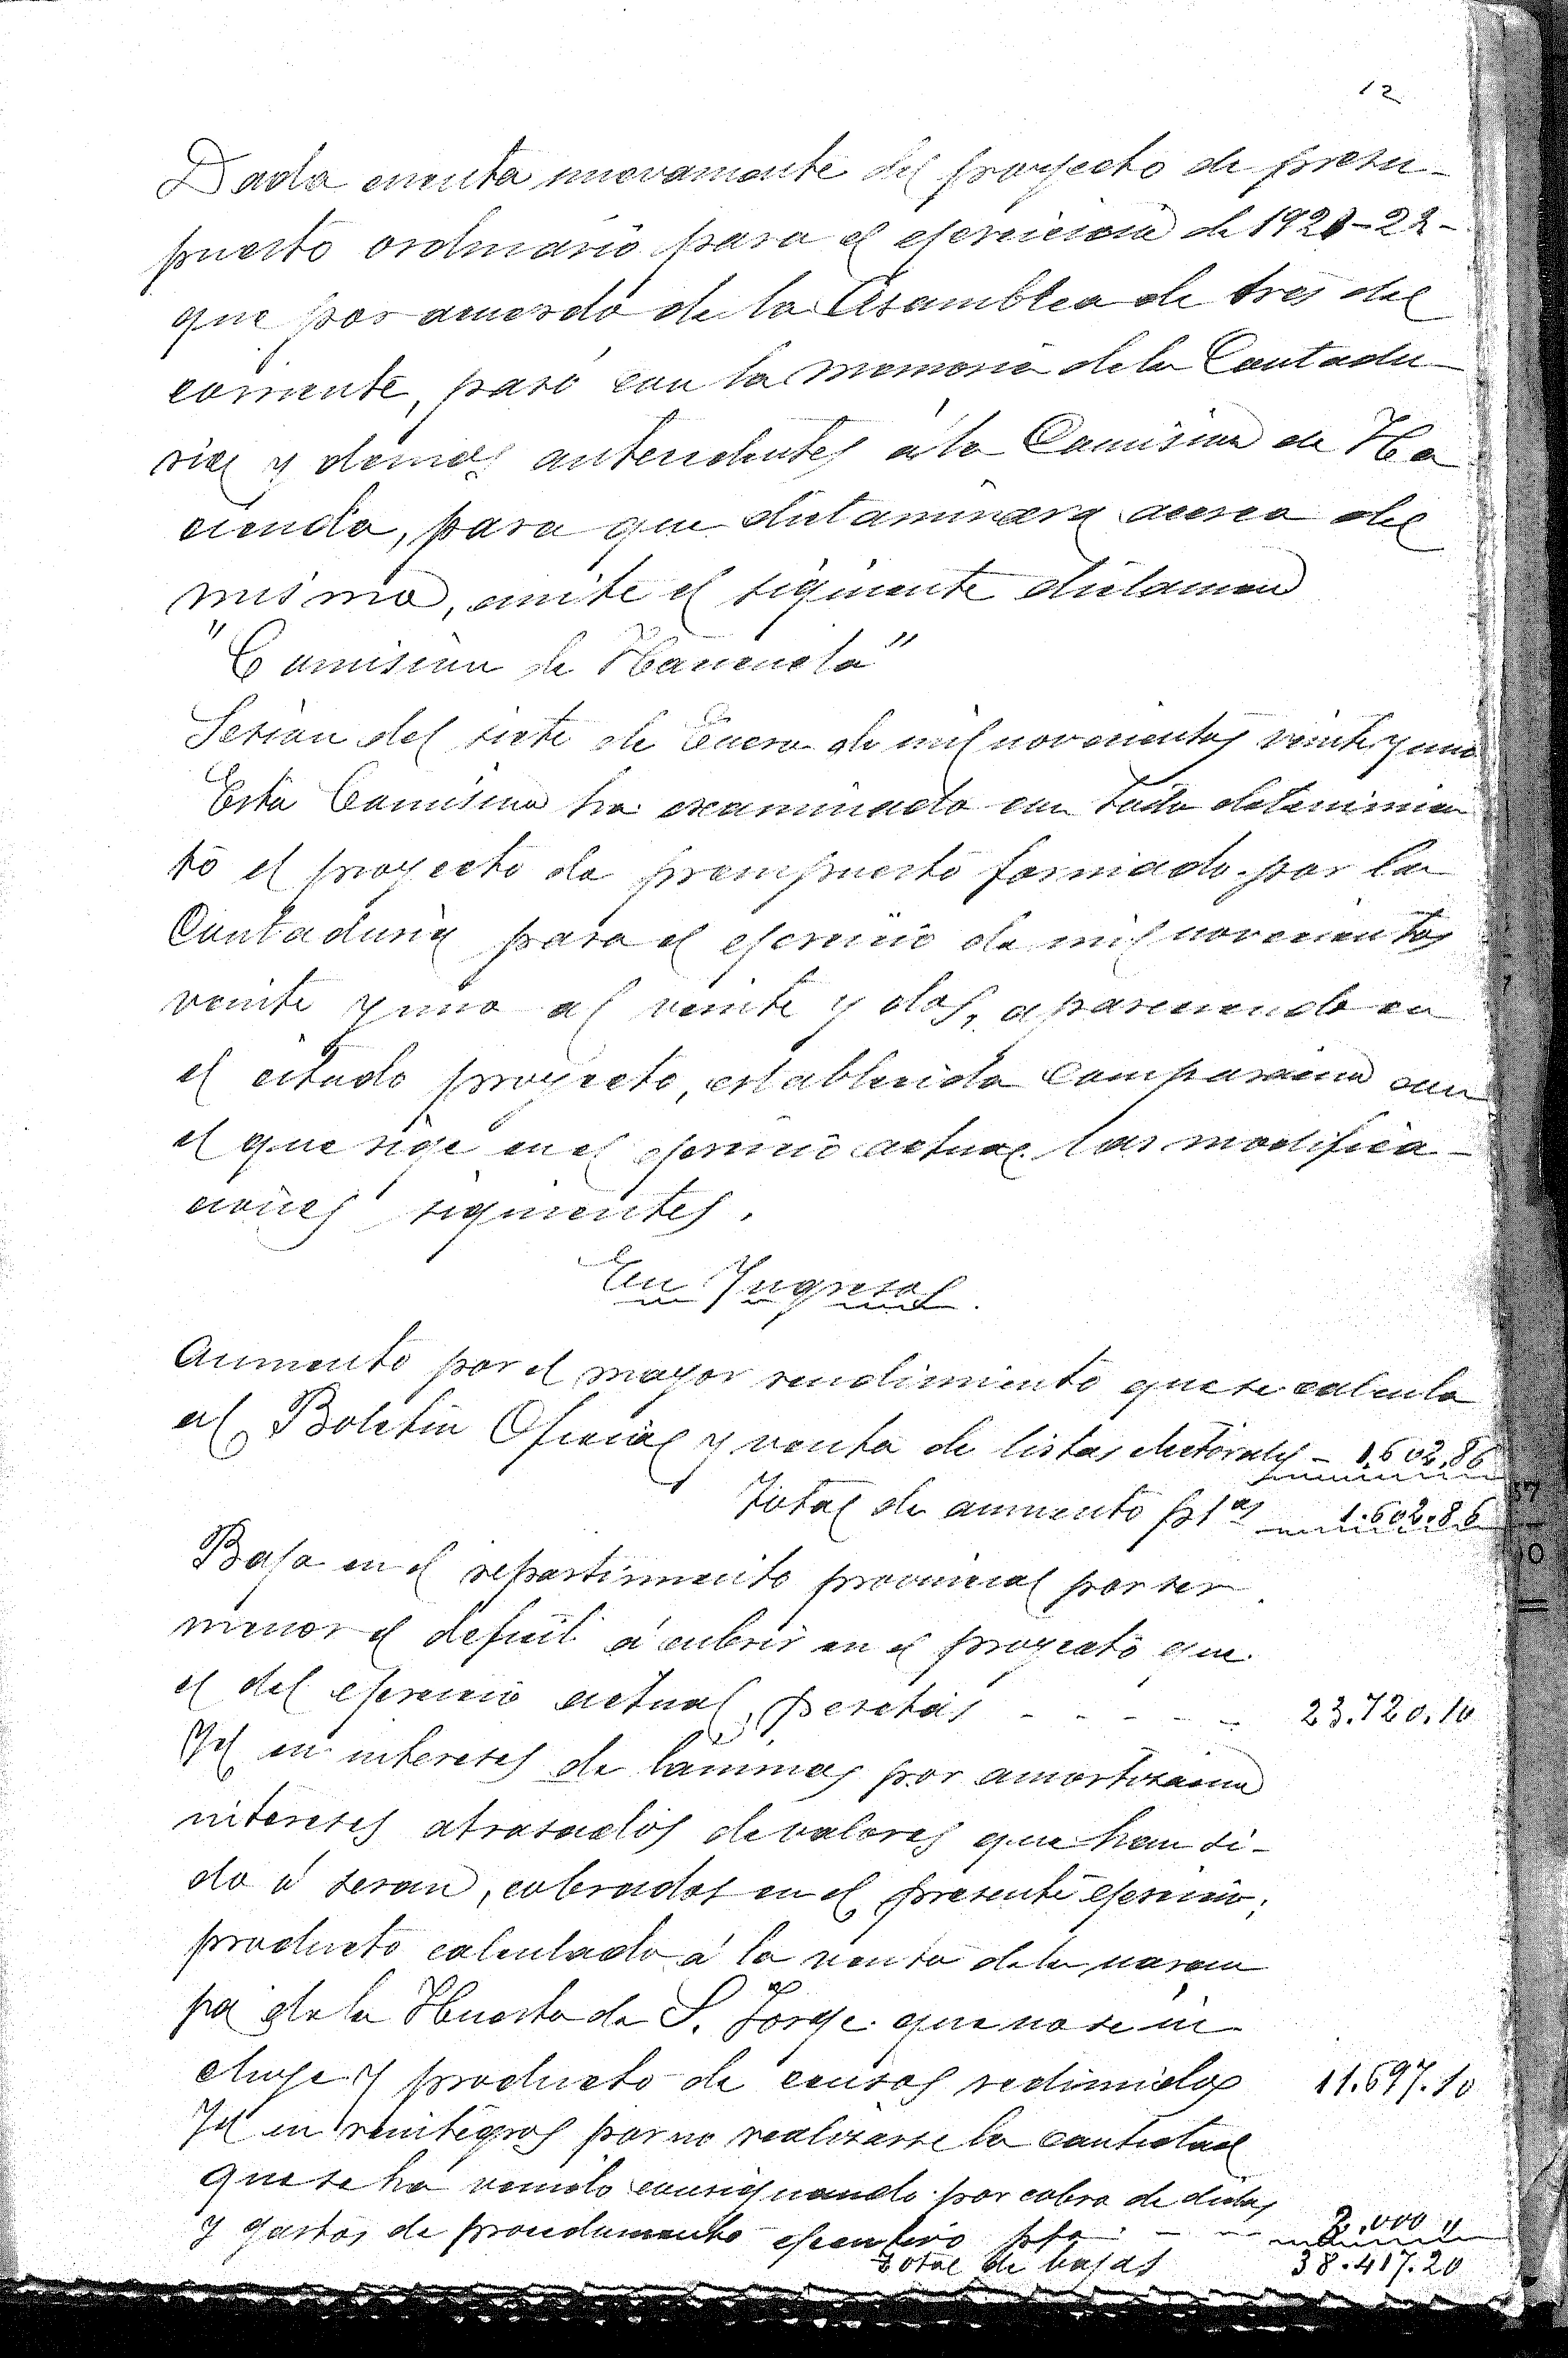 12
Dada cuenta nuevamente del proyecto de presu-
puesto ordinario para el ejercicio de 1921-22-
que por acuerdo de la Asamblea de tres del
corriente, pasó con la memoria de la Contadu-
ria y demas antecedentes á la Comision de Ha
cienda, para que dictaminara acerca del
mismo, emite el siguiente dictamen
"Comision de Hacienda"
Sesion del siete de Enero de mil novecientos veinte y uno
Esta Comision ha examinado con todo detenimien
to el proyecto de presupuesto formado por la
Contaduria para el ejercicio de mil novecientos
veinte y uno al veinte y dos, apareciendo en
el citado proyecto, establecida comparacion con
el que rige en el ejercicio actual las modifica-
ciones siguientes.
En Ingresos.
Aumento por el mayor rendimiento que se calcula
al Boletin Oficial y venta de listas electorales - 1.602,86
Total de aumento ptas 1.602.86
Baja en el repartimiento provincial por ser
menor el deficit á cubrir en el proyecto que
el del ejercicio actual, pesetas - - - - - 23.720.10
Yd en intereses de láminas por amortizacion
intereses atrasados de valores que han si-
do ó seran, cobrados en el presente ejercicio;
producto calculado á la venta de la
de la Huerta de S. Jorge que no se in
cluye y producto de censos redimidos 11.697.10
Yd en reintegros por no realizarse la cantidad
que se ha venido consignando por cobro de dietas
y gastos de procedimiento ejecutivo pta. - - - 3.000 "
Total de bajas 38.417.20